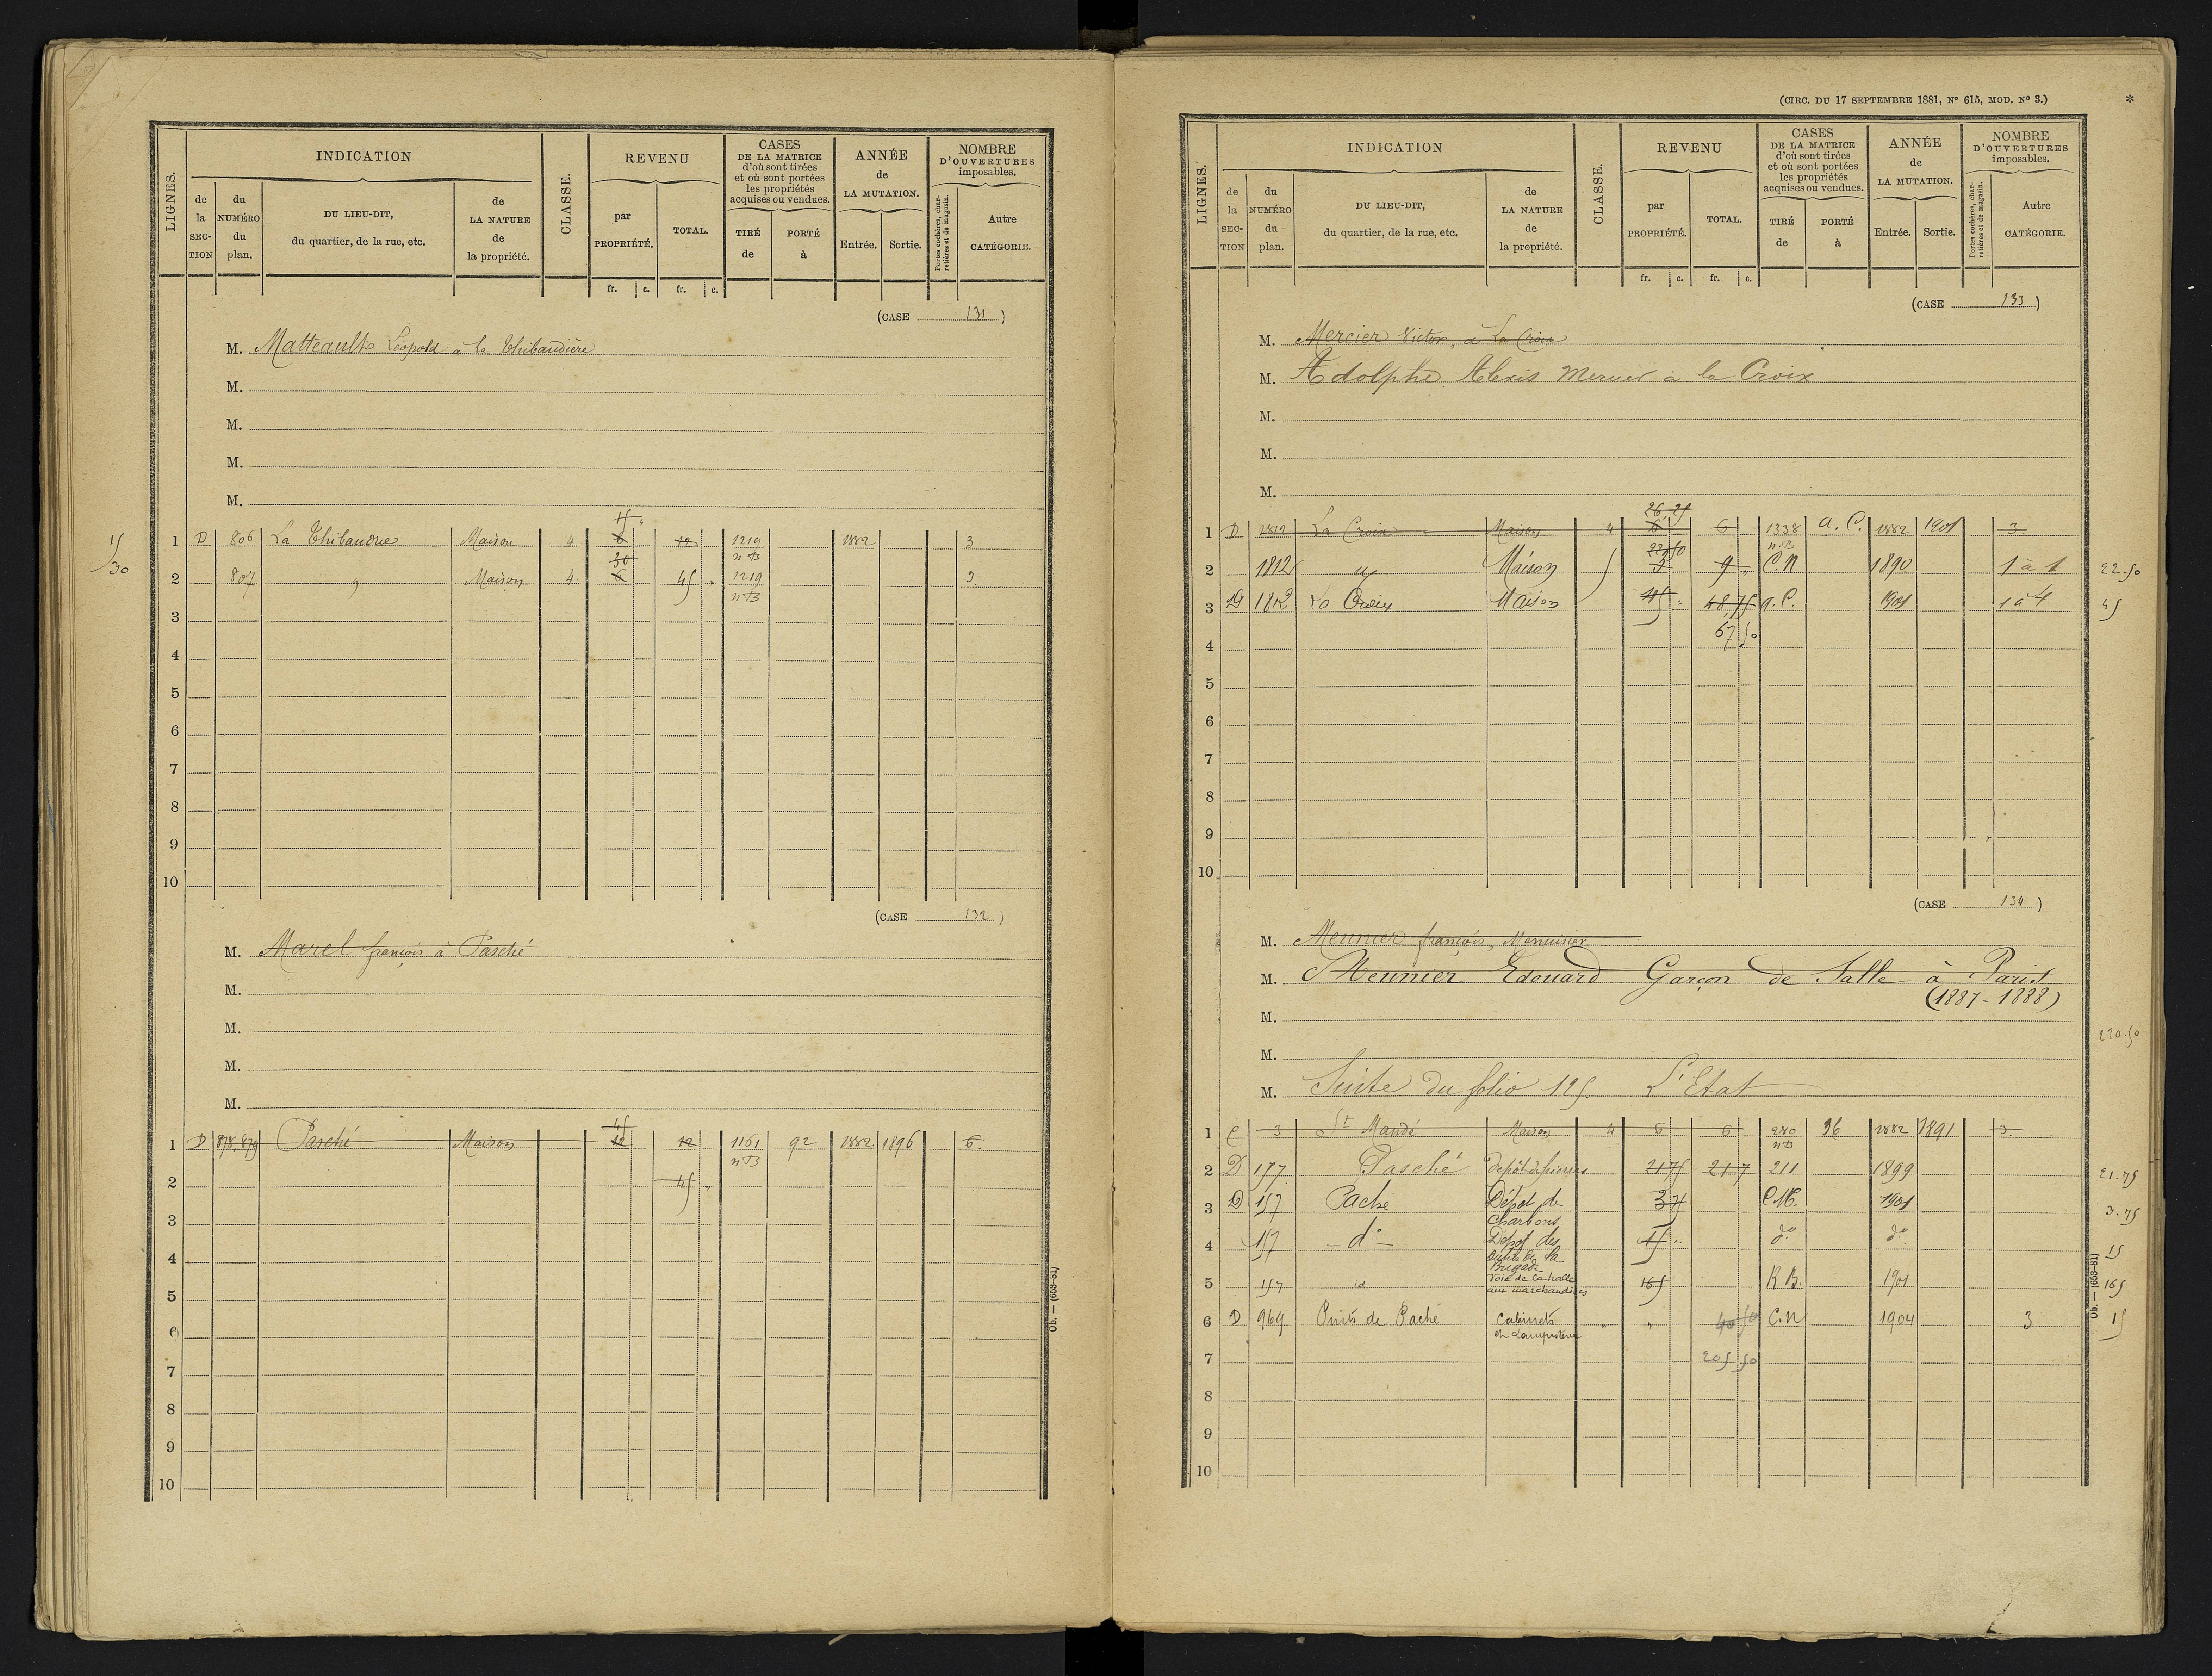 LIGNES.
INDICATION
de la SECTION
du NUMÉRO du plan.
DU LIEU-DIT, du quartier, de la rue, etc.
de LA NATURE de la propriété.
CLASSE.
REVENU
par PROPRIÉTÉ.
TOTAL.
fr. c. fr. c.
CASES
DE LA MATRICE
d'où sont tirées
et où sont portées
les propriétés
acquises ou vendues.
TIRÉ de
PORTÉ à
ANNÉE
de
LA MUTATION.
Entrée. Sortie.
NOMBRE
D'OUVERTURES
imposables.
Portes cochères, charretières et de magasin.
Autre CATÉGORIE.
(CASE 131)
M. Matteault Léopold à la Thibaudière
M.
M.
M.
M.
15
15 1 D 806 La Thibaudre Maison 4 6 12 1219 1882 3
30 nB
30 2 807 " Maison 4 6 45 " 1219 3
nB
3
4
5
6
7
8
9
10
(CASE 132)
M. Marel françois à Pasché
M.
M.
M.
M.
45
1 D 878, 879 Pasché Maison 12 12 1161 92 1882 1896 6
nB
2 45 "
3
4
5
6
7
8
9
10
Ob. — (653-81)
(CIRC. DU 17 SEPTEMBRE 1881, Nº 615, MOD. Nº 3.)
*
LIGNES.
INDICATION
de la SECTION
du NUMÉRO du plan.
DU LIEU-DIT, du quartier, de la rue, etc.
de LA NATURE de la propriété.
CLASSE.
REVENU
par PROPRIÉTÉ.
TOTAL.
fr. c. fr. c.
CASES
DE LA MATRICE
d'où sont tirées
et où sont portées
les propriétés
acquises ou vendues.
TIRÉ de
PORTÉ à
ANNÉE
de
LA MUTATION.
Entrée. Sortie.
NOMBRE
D'OUVERTURES
imposables.
Portes cochères, charretières et de magasin.
Autre CATÉGORIE.
(CASE 133)
M. Mercier Victor, à La Croix
M. Adolphe Alexis Mercier à la Croix
M.
M.
M.
26,25
1 D 1812 La Croix Maison 4 6 6 1338 a.C. 1882 1901 3
22 50 nB
2 1812 " Maison 5 9 9 " C.N 1890 1 à 1 22.50
3 D 1812 La Croix Maison 45 " 48,75 a.C. 1901 1 à 4 45
67 50
4
5
6
7
8
9
10
(CASE 134)
M. Meunier françois, Menuisier
M. Meunier Edouard Garçon de Salle à Paris
(1887-1888)
M.
M.
220.50
M. Suite du folio 125. L'Etat
1 C 3 St Mandé Maison 4 6 6 280 36 1882 1891 3.
nB
2 D 157 Pasché Dépôt de pierres 21 75 21 7 211 1899 21.75
3 D 157 Paché Dépôt de Charbons 3 75 C.M. 1901 3.75
4 157 - do - Dépôt des de la Brigade 15 " do do 15
5 157 id Voie de la halle aux marchandises 165 R.B. 1901 165
6 D 969 Puits de Paché Cabinets et Lampisterie " " 40 50 C.N 1904 3 15
7 205 50
8
9
10
Ob. — (653-81)